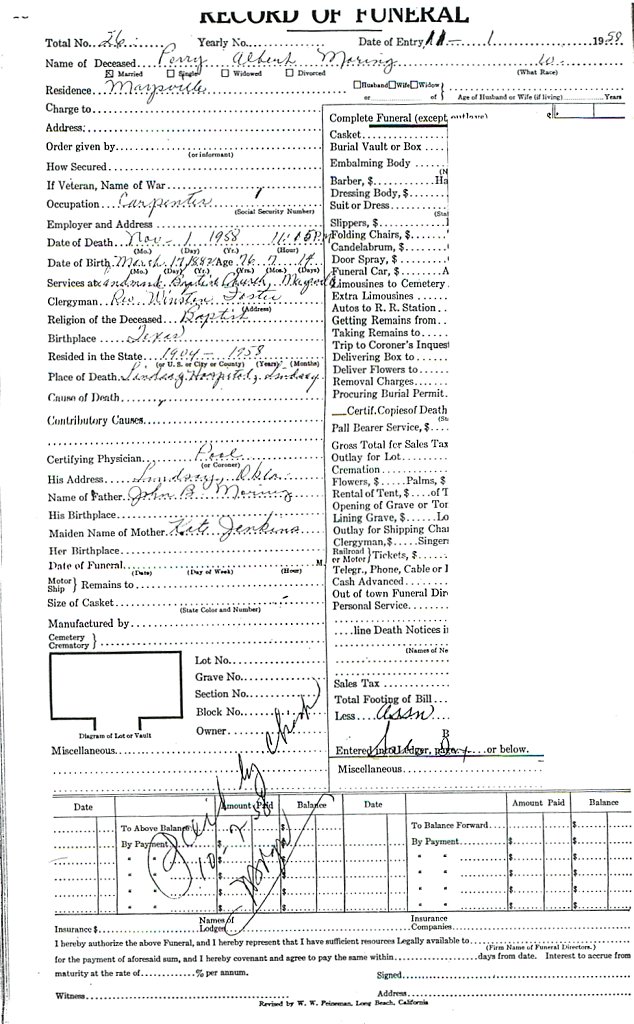 RECORD OF FUNERAL
Total No. 26 Yearly No. Date of Entry 11 - 1 1958
Name of Deceased Perry Albert Moring W.
☒ Married ☐ Single ☐ Widowed ☐ Divorced (What Race)
Residence Maysville ☐ Husband ☐ Wife ☐ Widow
or of Age of Husband or Wife (if living) Years
Charge to
Address:
Order given by
(or informant)
How Secured
If Veteran, Name of War
Occupation Carpenter
(Social Security Number)
Employer and Address
Date of Death Nov. 1 1958 11:15 P.
(Mo.) (Day) (Yr.) (Hour)
Date of Birth March 17, 1882 Age 76 7 14
(Mo.) (Day) (Yr.) (Yrs.) (Mos.) (Days)
Services at Landmark Baptist Church, Maysville
Clergyman Rev. Winston Foster
(Address)
Religion of the Deceased Baptist
Birthplace Texas
Resided in the State 1904 - 1958
(or U. S. or City or County) (Years) (Months)
Place of Death Lindsay Hospital, Lindsay
Cause of Death
Contributory Causes
Certifying Physician
(or Coroner)
His Address Lindsay, Okla.
Name of Father John B. Moring
His Birthplace
Maiden Name of Mother Kate Jenkins
Her Birthplace
Date of Funeral M.
(Date) (Day of Week) (Hour)
Motor
Ship } Remains to
Size of Casket
(State Color and Number)
Manufactured by
Cemetery
Crematory }
Lot No.
Grave No.
Section No.
Block No.
Owner
Diagram of Lot or Vault
Miscellaneous
Complete Funeral (except outlays) $
Casket
Burial Vault or Box
Embalming Body
(N
Barber, $ Ha
Dressing Body, $
Suit or Dress
(Stat
Slippers, $
Folding Chairs, $
Candelabrum, $
Door Spray, $
Funeral Car, $ A
Limousines to Cemetery
Extra Limousines
Autos to R. R. Station
Getting Remains from
Taking Remains to
Trip to Coroner's Inquest
Delivering Box to
Deliver Flowers to
Removal Charges
Procuring Burial Permit
Certif. Copies of Death
(St
Pall Bearer Service, $
Gross Total for Sales Tax
Outlay for Lot
Cremation
Flowers, $ Palms, $
Rental of Tent, $ of T
Opening of Grave or Tor
Lining Grave, $ Lo
Outlay for Shipping Char
Clergyman, $ Singer
Railroad
or Motor } Tickets, $
Telegr., Phone, Cable or
Cash Advanced
Out of town Funeral Dir
Personal Service
line Death Notices i
(Names of Ne
Sales Tax
Total Footing of Bill
Less Assn
B
Entered into Ledger, page or below.
Miscellaneous
Paid by check
10-7-58
Date Amount Paid Balance Date Amount Paid Balance
To Above Balance $ To Balance Forward $
By Payment $ By Payment $
" " $ " " $
" " $ " " $
" " $ " " $
" " $ " " $
Insurance $ Names of
Lodges Insurance
Companies
I hereby authorize the above Funeral, and I hereby represent that I have sufficient resources Legally available to
(Firm Name of Funeral Directors.)
for the payment of aforesaid sum, and I hereby covenant and agree to pay the same within days from date. Interest to accrue from
maturity at the rate of % per annum. Signed
Witness Address
Revised by W. W. Peineman, Long Beach, California